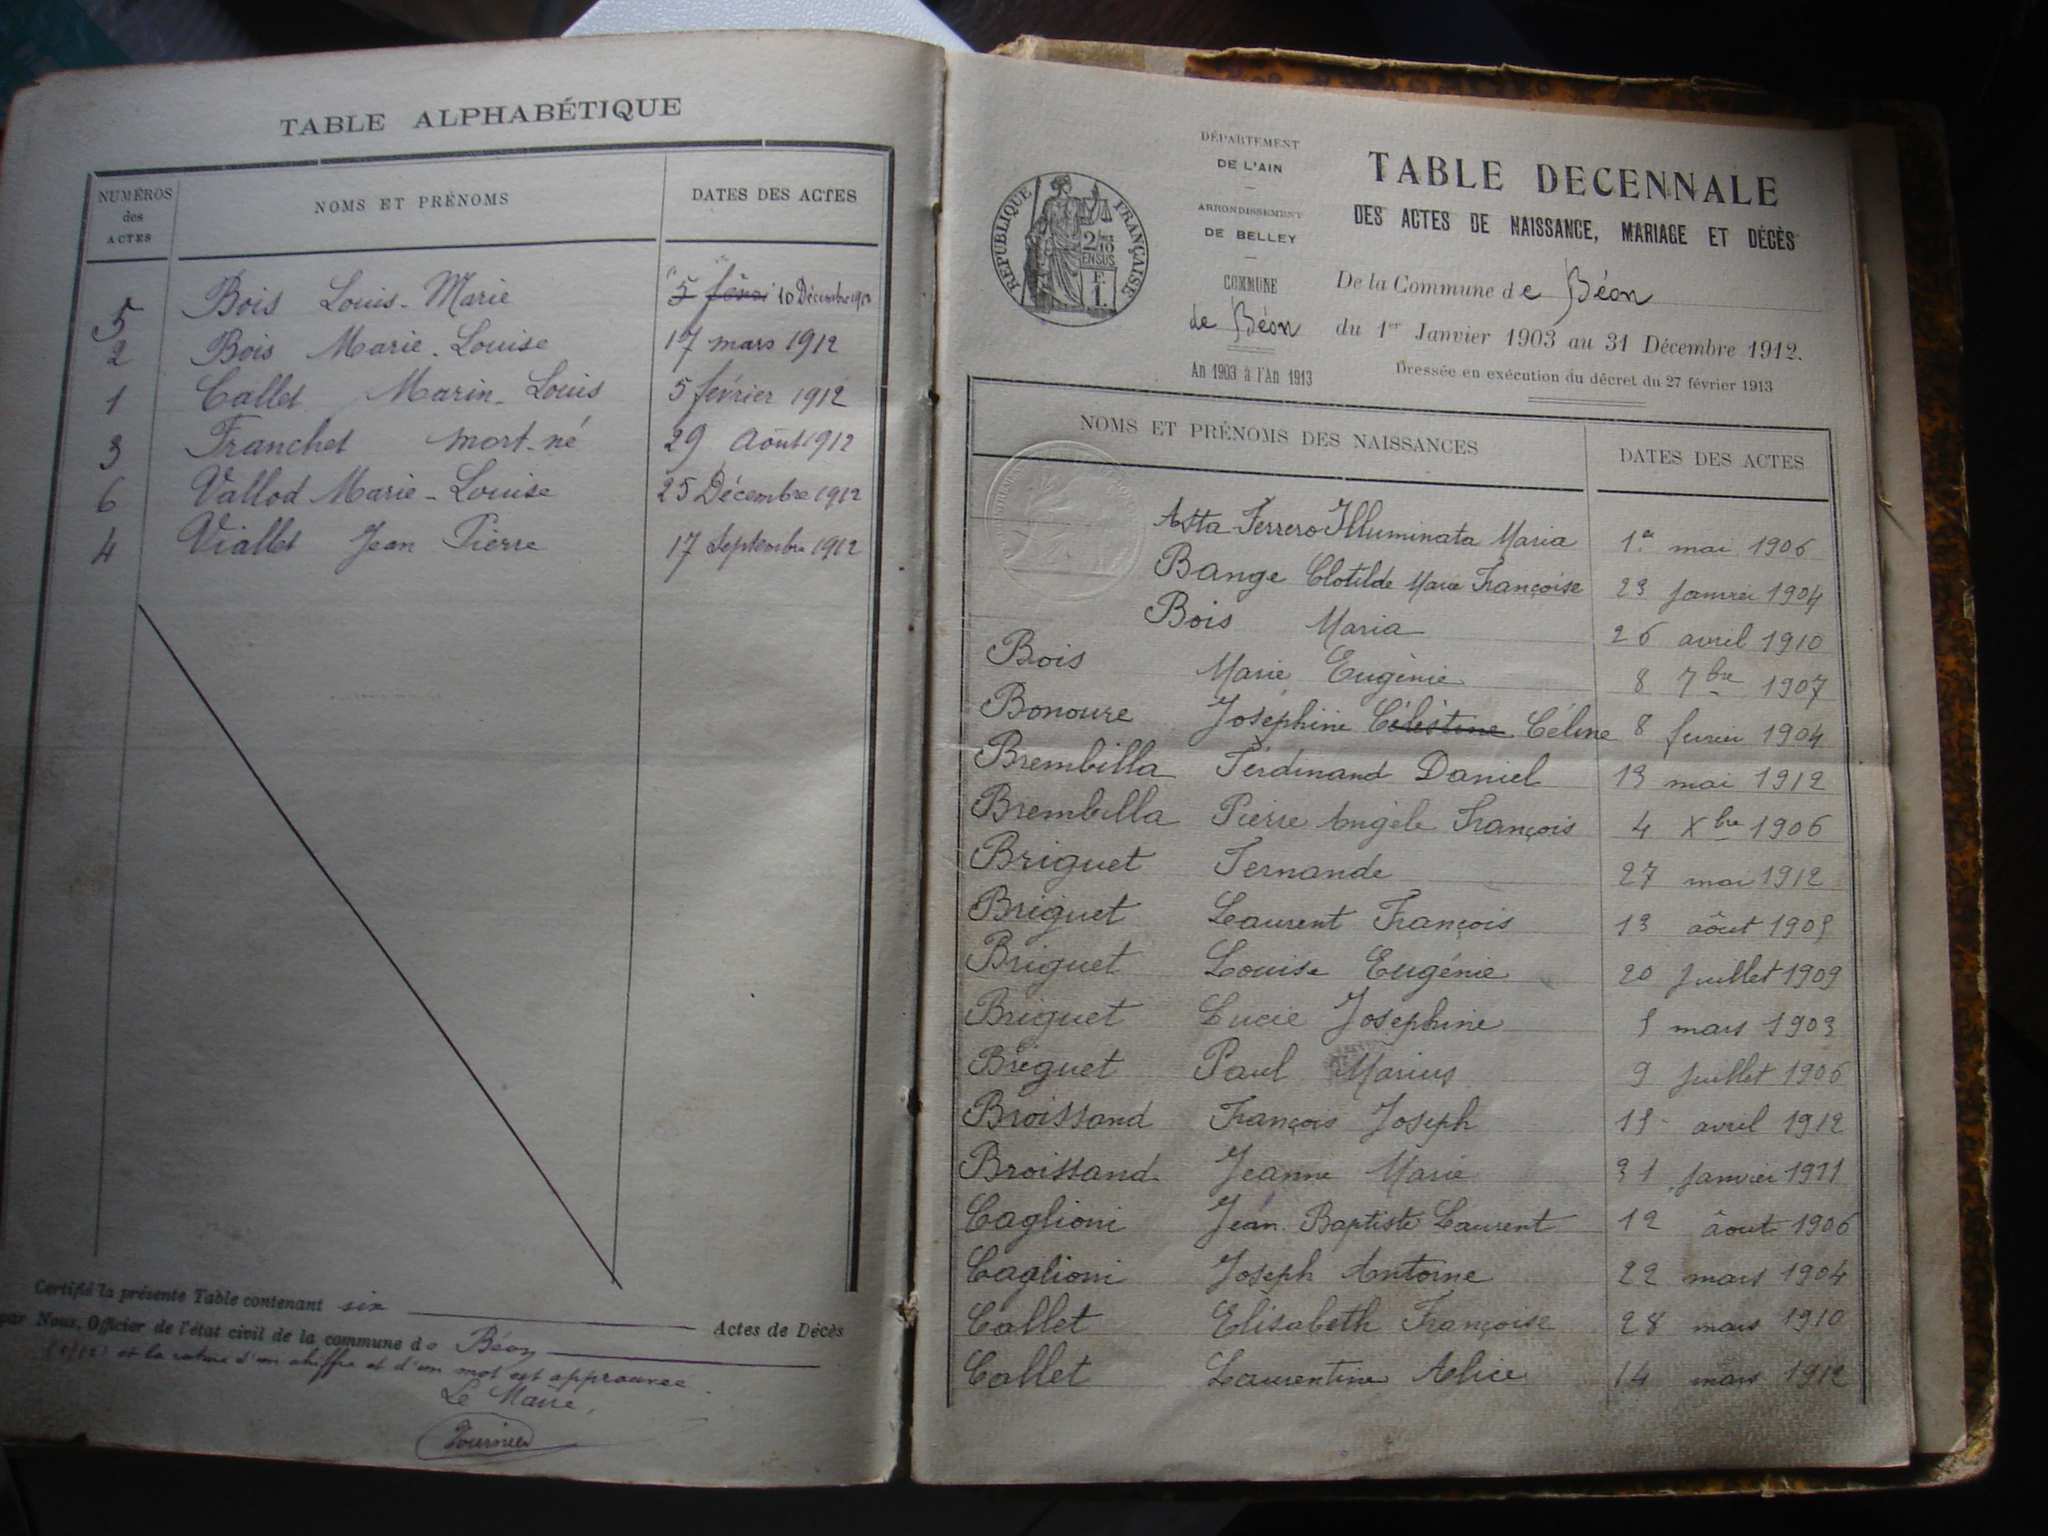 TABLE ALPHABÉTIQUE
NUMÉROS des ACTES NOMS ET PRÉNOMS DATES DES ACTES
5 Bois Louis-Marie 5 10 Décembre
2 Bois Marie-Louise 17 mars 1912
1 Callet Marin-Louis 5 février 1912
3 Franchet mort-né 29 Août 1912
6 Vallod Marie-Louise 25 Décembre 1912
4 Viallet Jean Pierre 17 Septembre 1912
Certifié la présente Table contenant six Actes de Décès
par Nous, Officier de l'état civil de la commune de Béon
et la rature d'un chiffre et d'un mot est approuvée.
Le Maire,
Tournier
DÉPARTEMENT
DE L'AIN
ARRONDISSEMENT
DE BELLEY
COMMUNE
de Béon
An 1903 à l'An 1913
RÉPUBLIQUE FRANÇAISE
2/10
EN SUS
TABLE DECENNALE
DES ACTES DE NAISSANCE, MARIAGE ET DÉCÈS
De la Commune de Béon
du 1er Janvier 1903 au 31 Décembre 1912.
Dressée en exécution du décret du 27 février 1913
NOMS ET PRÉNOMS DES NAISSANCES DATES DES ACTES
Asta Ferrero Illuminata Maria 1er mai 1906
Bange Clotilde Marie Françoise 23 Janvier 1904
Bois Maria 26 avril 1910
Bois Marie Eugénie 8 7bre 1907
Bonoure Joséphine Célèstine Céline 8 fevrier 1904
Brembilla Ferdinand Daniel 13 mai 1912
Brembilla Pierre Angèle François 4 Xbre 1906
Briguet Fernande 27 mai 1912
Briguet Laurent François 13 âout 1905
Briguet Louise Eugénie 20 Juillet 1909
Briguet Lucie Joséphine 5 mars 1903
Briguet Paul Marius 9 Juillet 1906
Broissand François Joseph 15 avril 1912
Broissand Jeanne Marie 31 Janvier 1911
Caglioni Jean Baptiste Laurent 12 âout 1906
Caglioni Joseph Antoine 22 mars 1904
Callet Elisabeth Françoise 28 mars 1910
Callet Laurentine Alice 14 mars 1912